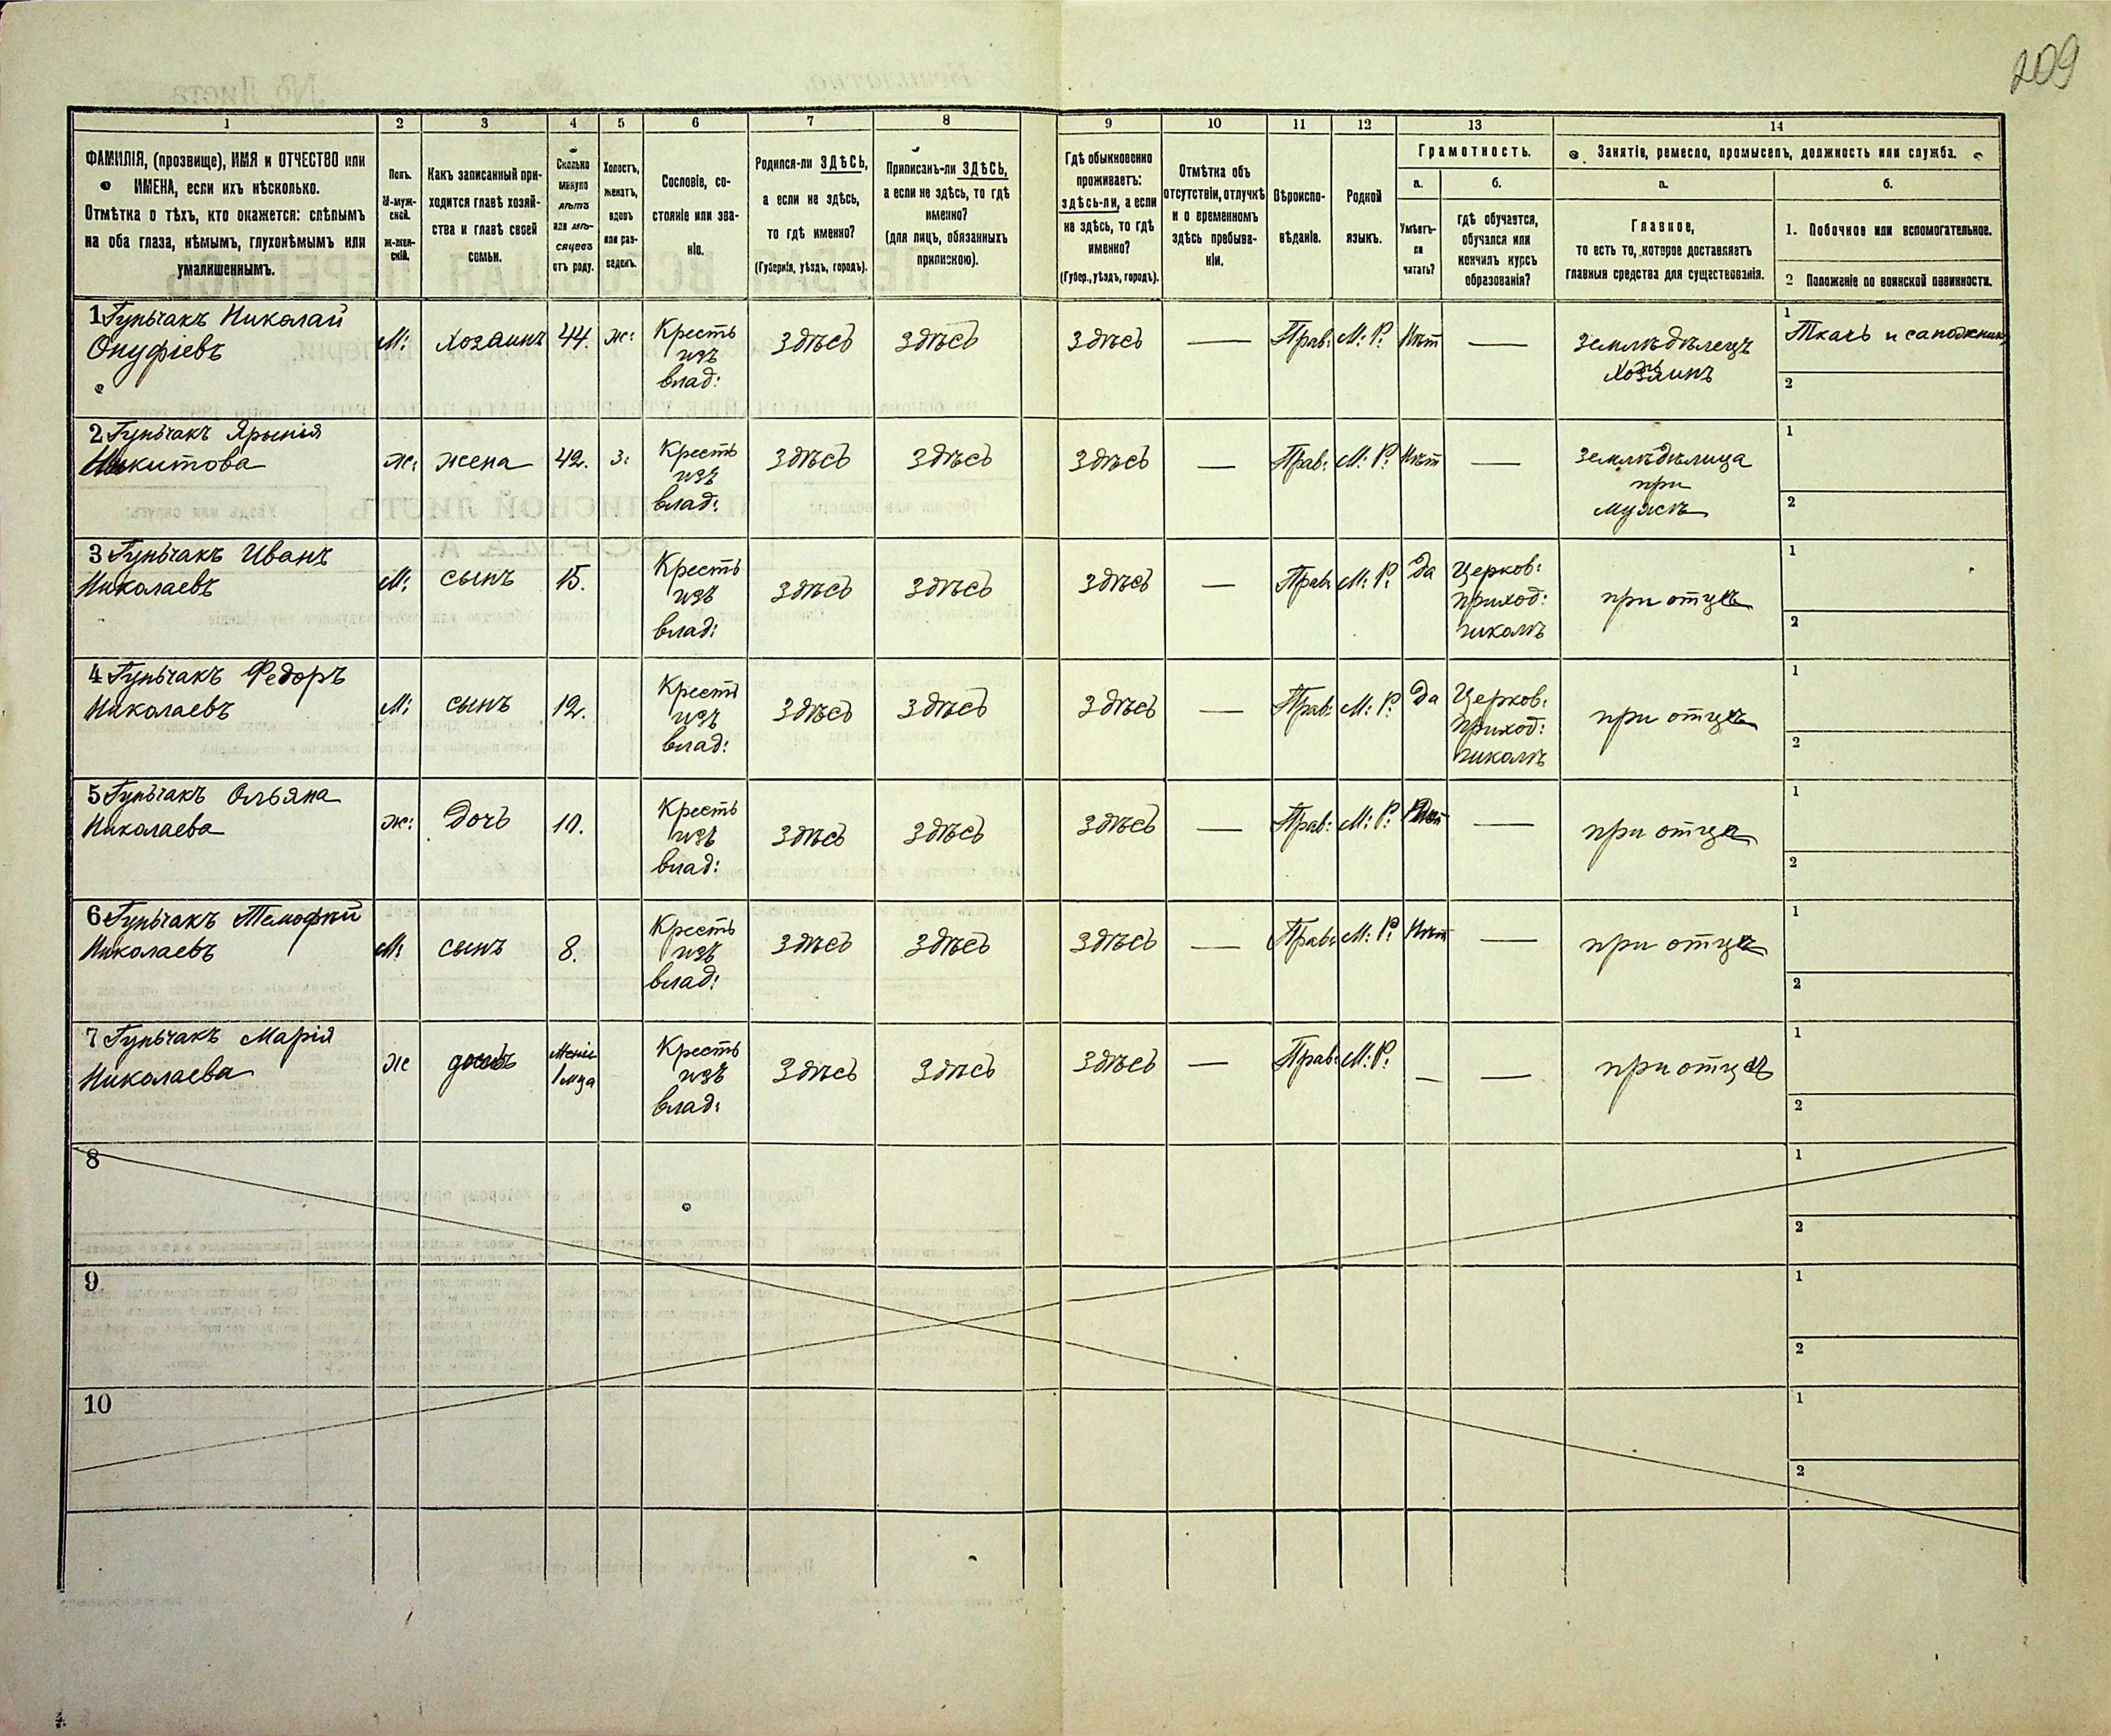 209
1 2 3 4 5 6 7 8 9 10 11 12 13 14
ФАМИЛІЯ, (прозвище), ИМЯ и ОТЧЕСТВО или
ИМЕНА, если ихъ нѣсколько.
Отмѣтка о тѣхъ, кто окажется: слѣпымъ
на оба глаза, нѣмымъ, глухонѣмымъ или
умалишеннымъ.
Полъ.
М-муж-
ской.
Ж-жен-
скій.
Какъ записанный при-
ходится главѣ хозяй-
ства и главѣ своей
семьи.
Сколько
минуло
лѣтъ
или мѣ-
сяцевъ
отъ роду.
Холостъ,
женатъ,
вдовъ
или раз-
веденъ.
Сословіе, со-
стояніе или зва-
ніе.
Родился-ли ЗДѢСЬ,
а если не здѣсь,
то гдѣ именно?
(Губернія, уѣздъ, городъ).
Приписанъ-ли ЗДѢСЬ,
а если не здѣсь, то гдѣ
именно?
(для лицъ, обязанныхъ
припискою).
Гдѣ обыкновенно
проживаетъ:
здѣсь-ли, а если
не здѣсь, то гдѣ
именно?
(Губер., уѣздъ, городъ).
Отмѣтка объ
отсутствіи, отлучкѣ
и о временномъ
здѣсь пребыва-
ніи.
Вѣроиспо-
вѣданіе.
Родной
языкъ.
Грамотность.
а.
Умѣетъ-
ли
читать?
б.
гдѣ обучается,
обучался или
кончилъ курсъ
образованія?
Занятіе, ремесло, промыселъ, должность или служба.
а.
Главное,
то есть то, которое доставляетъ
главныя средства для существованія.
б.
1. Побочное или вспомогательное.
2 Положеніе по воинской повинности.
1 Гульчакъ Николай
Онуфріевъ
М: Хозяинъ 44. ж: Кресть
изъ
влад:
здѣсь здѣсь здѣсь — Прав: М: Р: Нѣт —
землѣдѣлецъ
хозяинъ
1
Ткачь и сапожник
2
2 Гульчакъ Ярынія
Никитова
ж: жена 42. з: Кресть
изъ
влад:
здѣсь здѣсь здѣсь — Прав: М: Р: Нѣт —
землѣдѣлица
при
мужѣ
1
2
3 Гульчакъ Иванъ
Николаевъ
М: сынъ 15. Кресть
изъ
влад:
здѣсь здѣсь здѣсь — Прав: М: Р: Да
Церков:
приход:
школѣ
при отцѣ
1
2
4 Гульчакъ Федоръ
Николаевъ
М: сынъ 12. Кресть
изъ
влад:
здѣсь здѣсь здѣсь — Прав: М: Р: Да
Церков:
приход:
школѣ
при отцѣ
1
2
5 Гульчакъ Ольяна
Николаева
ж: дочь 10. Кресть
изъ
влад:
здѣсь здѣсь здѣсь — Прав: М: Р: —
при отцѣ
1
2
6 Гульчакъ Темофѣй
Николаевъ
М: сынъ 8. Кресть
изъ
влад:
здѣсь здѣсь здѣсь — Прав: М: Р: Нѣт —
при отцѣ
1
2
7 Гульчакъ Марія
Николаева
ж дочь
1 мца
Кресть
изъ
влад:
здѣсь здѣсь здѣсь — Прав: М: Р: — —
при отцѣ
1
2
8
1
2
9
1
2
10
1
2